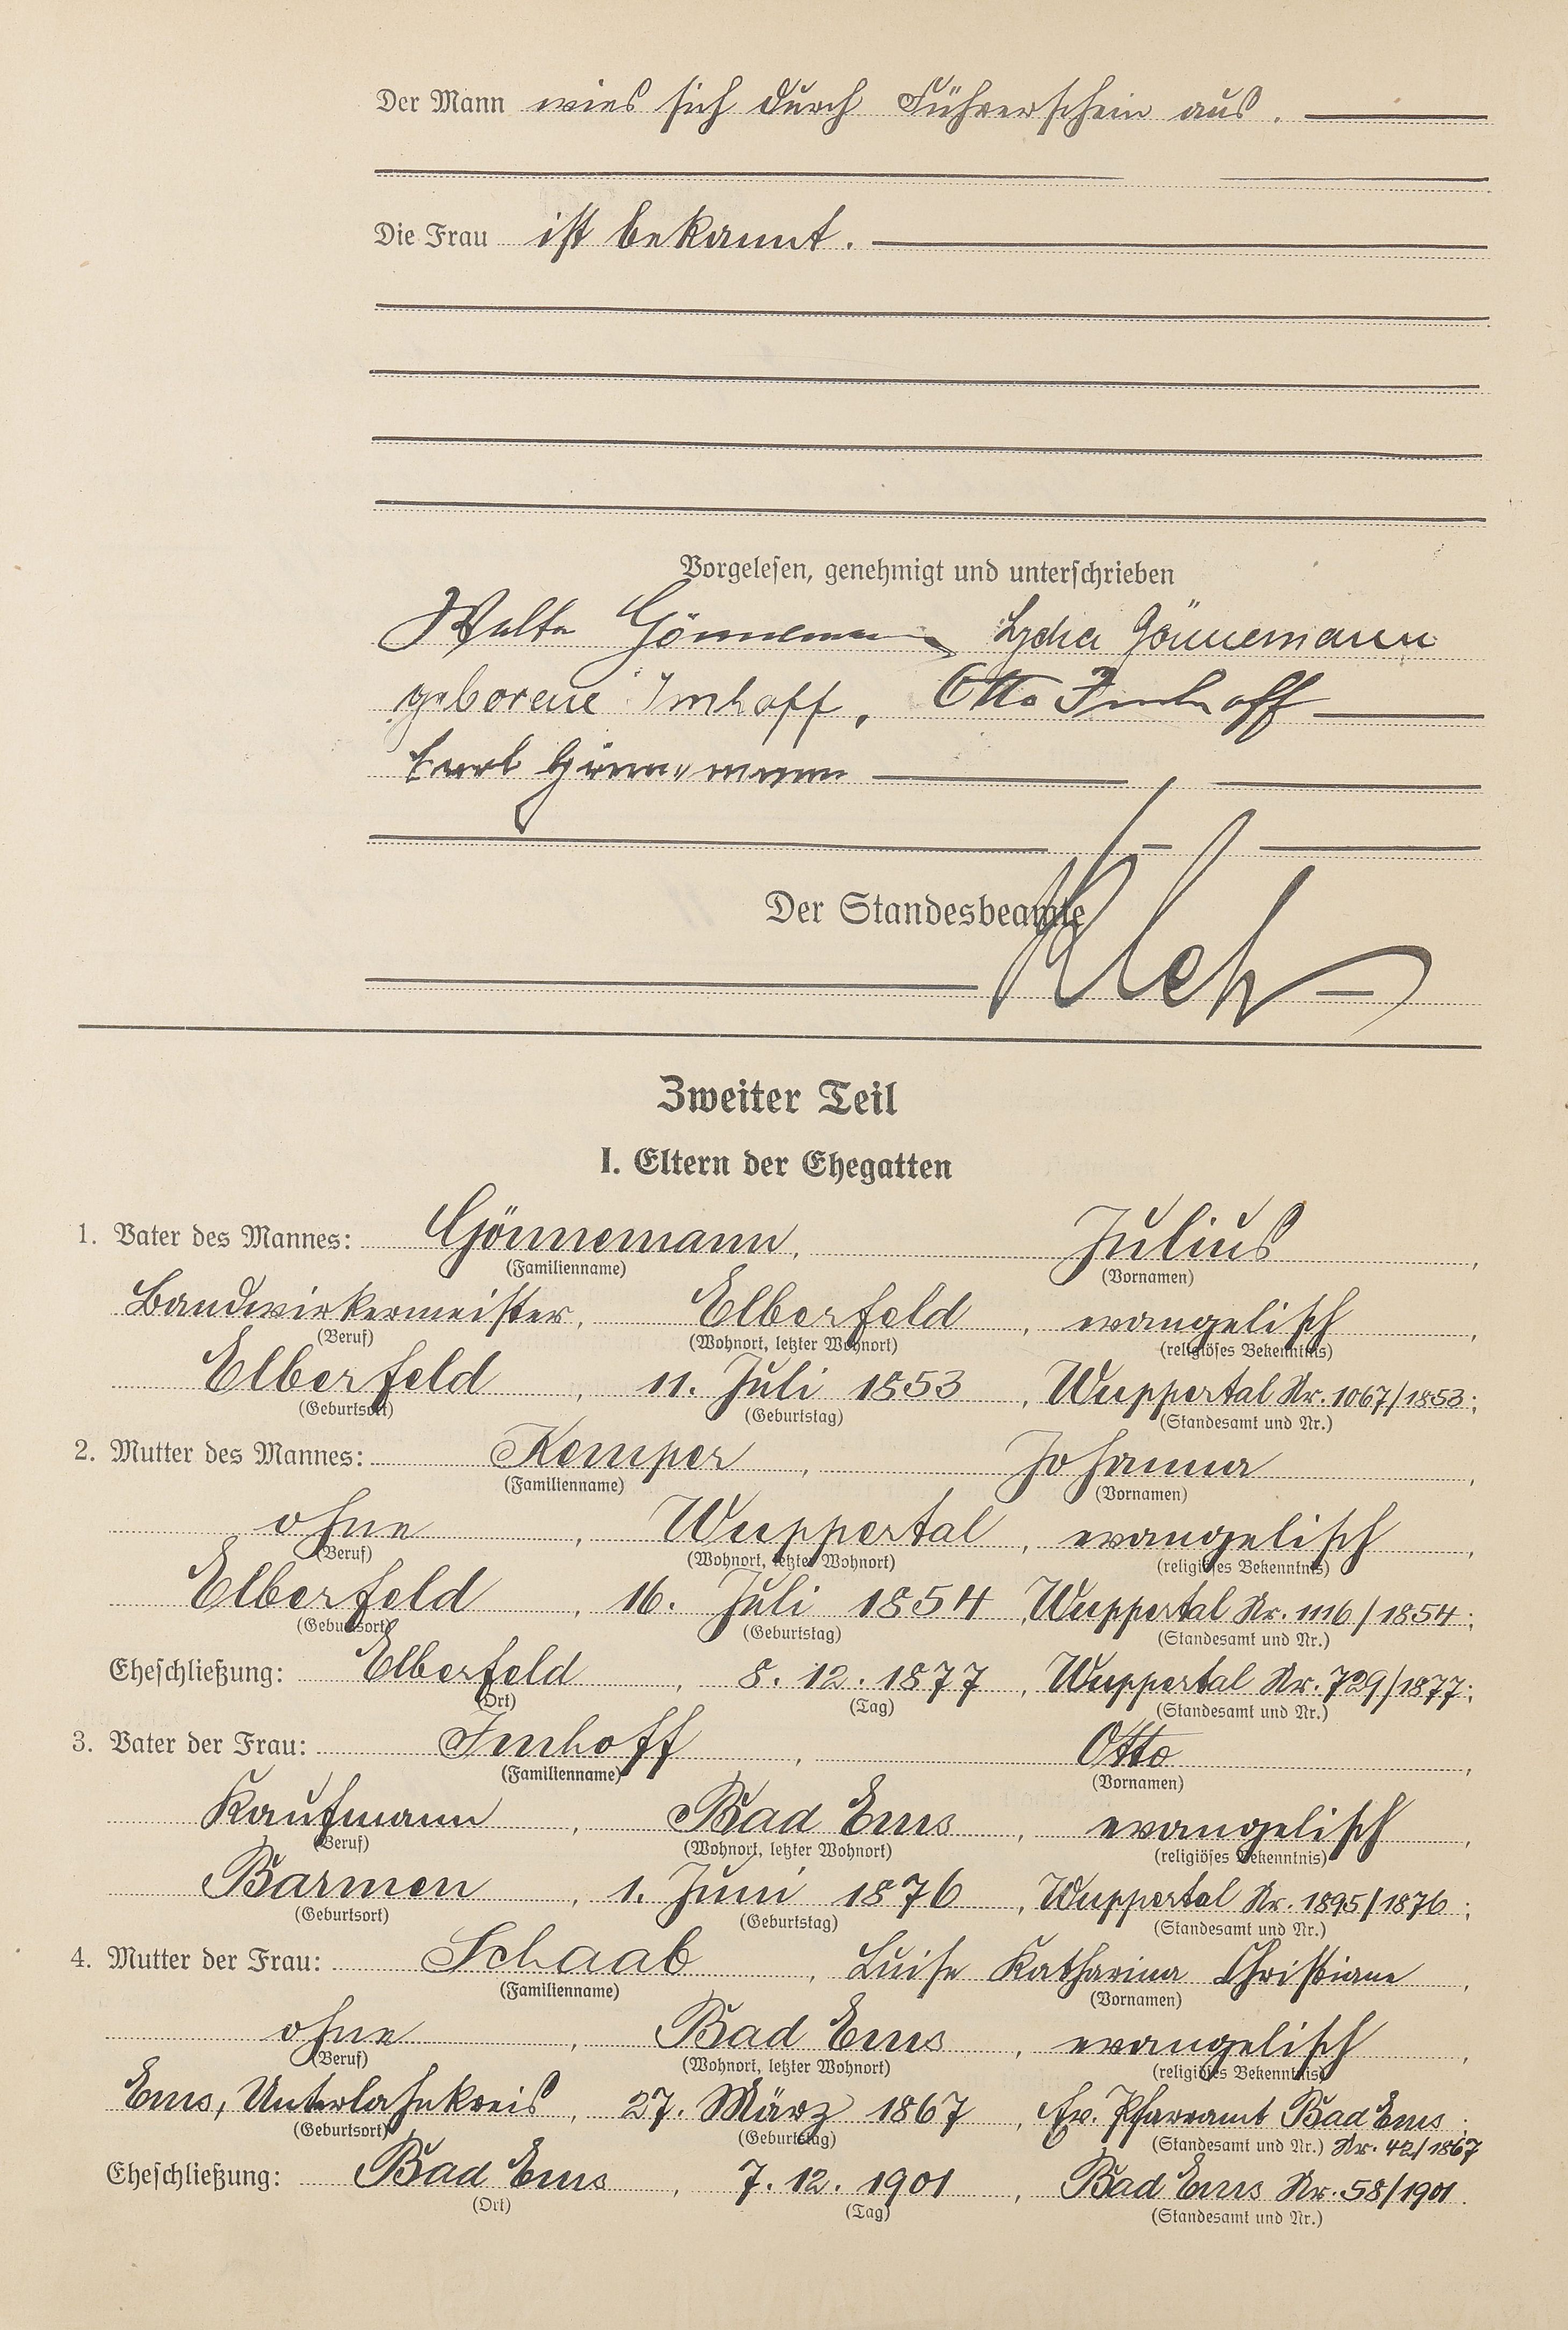 Der Mann wies sich durch Führerschein aus.
Die Frau ist bekannt.
Vorgelesen, genehmigt und unterschrieben
Walter Gönnemann Lydia Gönnemann
geborene Imhoff, Otto Imhoff
Carl Gönnemann
Der Standesbeamte
Zweiter Teil
I. Eltern der Ehegatten
1. Vater des Mannes: Gönnemann, Julius,
(Familienname) (Vornamen)
Bandwirkermeister, Elberfeld, evangelisch,
(Beruf) (Wohnort, letzter Wohnort) (religiöses Bekenntnis)
Elberfeld, 11. Juli 1853, Wuppertal Nr. 1067/1853;
(Geburtsort) (Geburtstag) (Standesamt und Nr.)
2. Mutter des Mannes: Kemper, Johanna,
(Familienname) (Vornamen)
ohne, Wuppertal, evangelisch,
(Beruf) (Wohnort, letzter Wohnort) (religiöses Bekenntnis)
Elberfeld, 16. Juli 1854, Wuppertal Nr. 1116/1854;
(Geburtsort) (Geburtstag) (Standesamt und Nr.)
Eheschließung: Elberfeld, 8. 12. 1877, Wuppertal Nr. 729/1877;
(Ort) (Tag) (Standesamt und Nr.)
3. Vater der Frau: Imhoff, Otto,
(Familienname) (Vornamen)
Kaufmann, Bad Ems, evangelisch,
(Beruf) (Wohnort, letzter Wohnort) (religiöses Bekenntnis)
Barmen, 1. Juni 1876, Wuppertal Nr. 1895/1876;
(Geburtsort) (Geburtstag) (Standesamt und Nr.)
4. Mutter der Frau: Schaab, Luise Katharina Christiane,
(Familienname) (Vornamen)
ohne, Bad Ems, evangelisch,
(Beruf) (Wohnort, letzter Wohnort) (religiöses Bekenntnis)
Ems, Unterlahnkreis, 27. März 1867, Ev. Pfarramt Bad Ems;
(Geburtsort) (Geburtstag) (Standesamt und Nr.) Nr. 42/1867
Eheschließung: Bad Ems, 7. 12. 1901, Bad Ems Nr. 58/1901.
(Ort) (Tag) (Standesamt und Nr.)